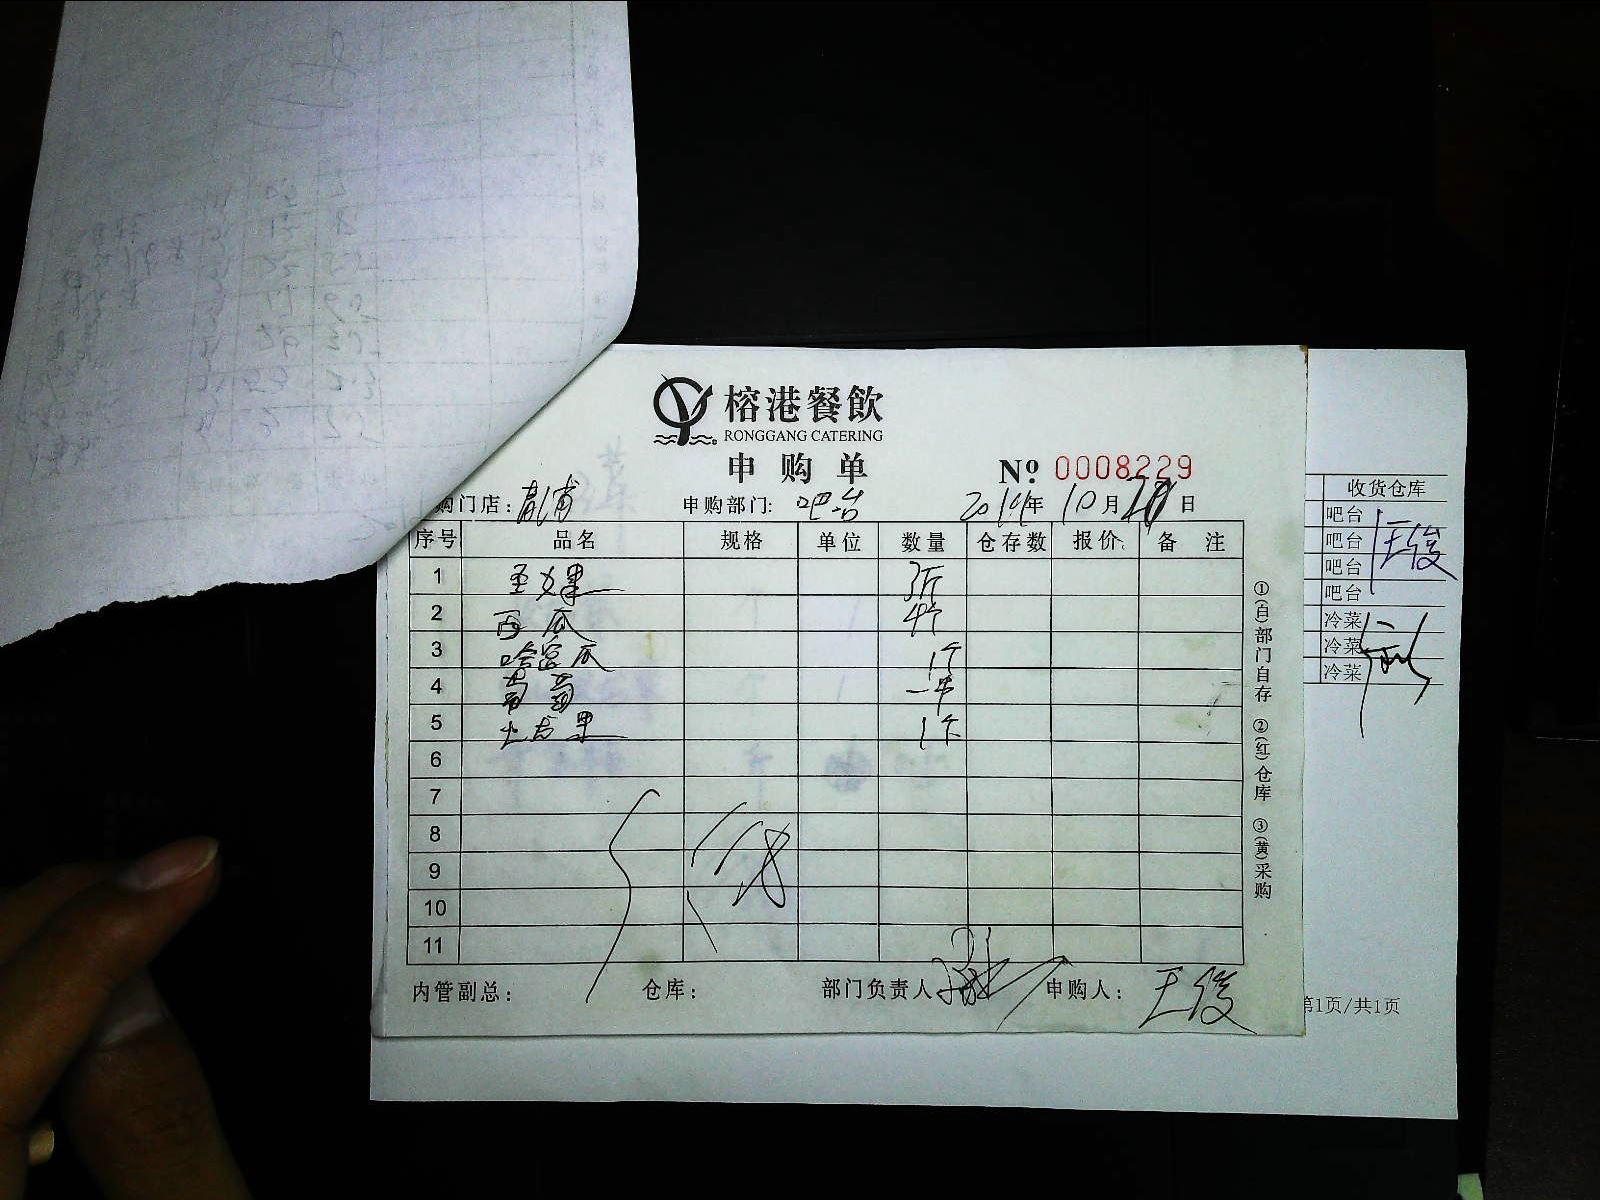 榕港餐飲
RONGGANG CATERING
申购单
Nº 0008229
购门店: 青浦 申购部门: 吧台 年 10月 日
序号 品名 规格 单位 数量 仓存数 报价 备注
1 圣女果 3斤
2 西瓜 4个
3 哈密瓜 1个
4 葡萄 一串
5 火龙果 1个
6
7
8
9
10
11
内管副总: 仓库: 部门负责人 申购人: 王俊
①(白)部门自存 ②(红)仓库 ③(黄)采购
收货仓库
吧台
吧台 王俊
吧台
吧台
冷菜
冷菜
冷菜
第1页/共1页